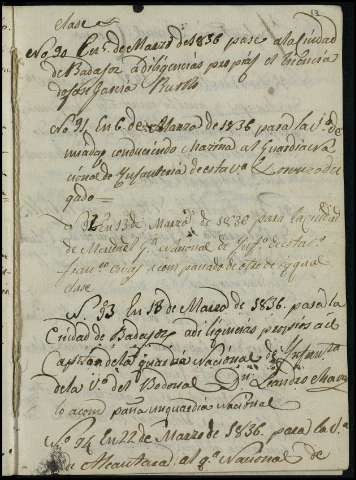 clase
No. 90 En 6 de Marzo de 1836 pase a la Ciudad
de Badajoz a diligencias propias el
José Garcia
No. 91 En 6 de Marzo de 1836 para la V.a de
conduciendo al Guardia Na
cional de Infanteria de esta v.a Lorenzo del
gado =
92 En 13 de Marzo de 1836 para la ciudad
de Nacional de
acompañado de otro de ygual
clase
N. 93 En 18 de Marzo de 1836 para la
Ciudad de Badajoz a diligencias propias a el
Capitan de la guardia Nacional de Infant.a
de la V.a del Bodonal Dn. Leandro
lo acompaña un guardia Nacional
No. 94 En 22 de Marzo de 1836 para la V.a
de Alcantara al g.a Nacional de